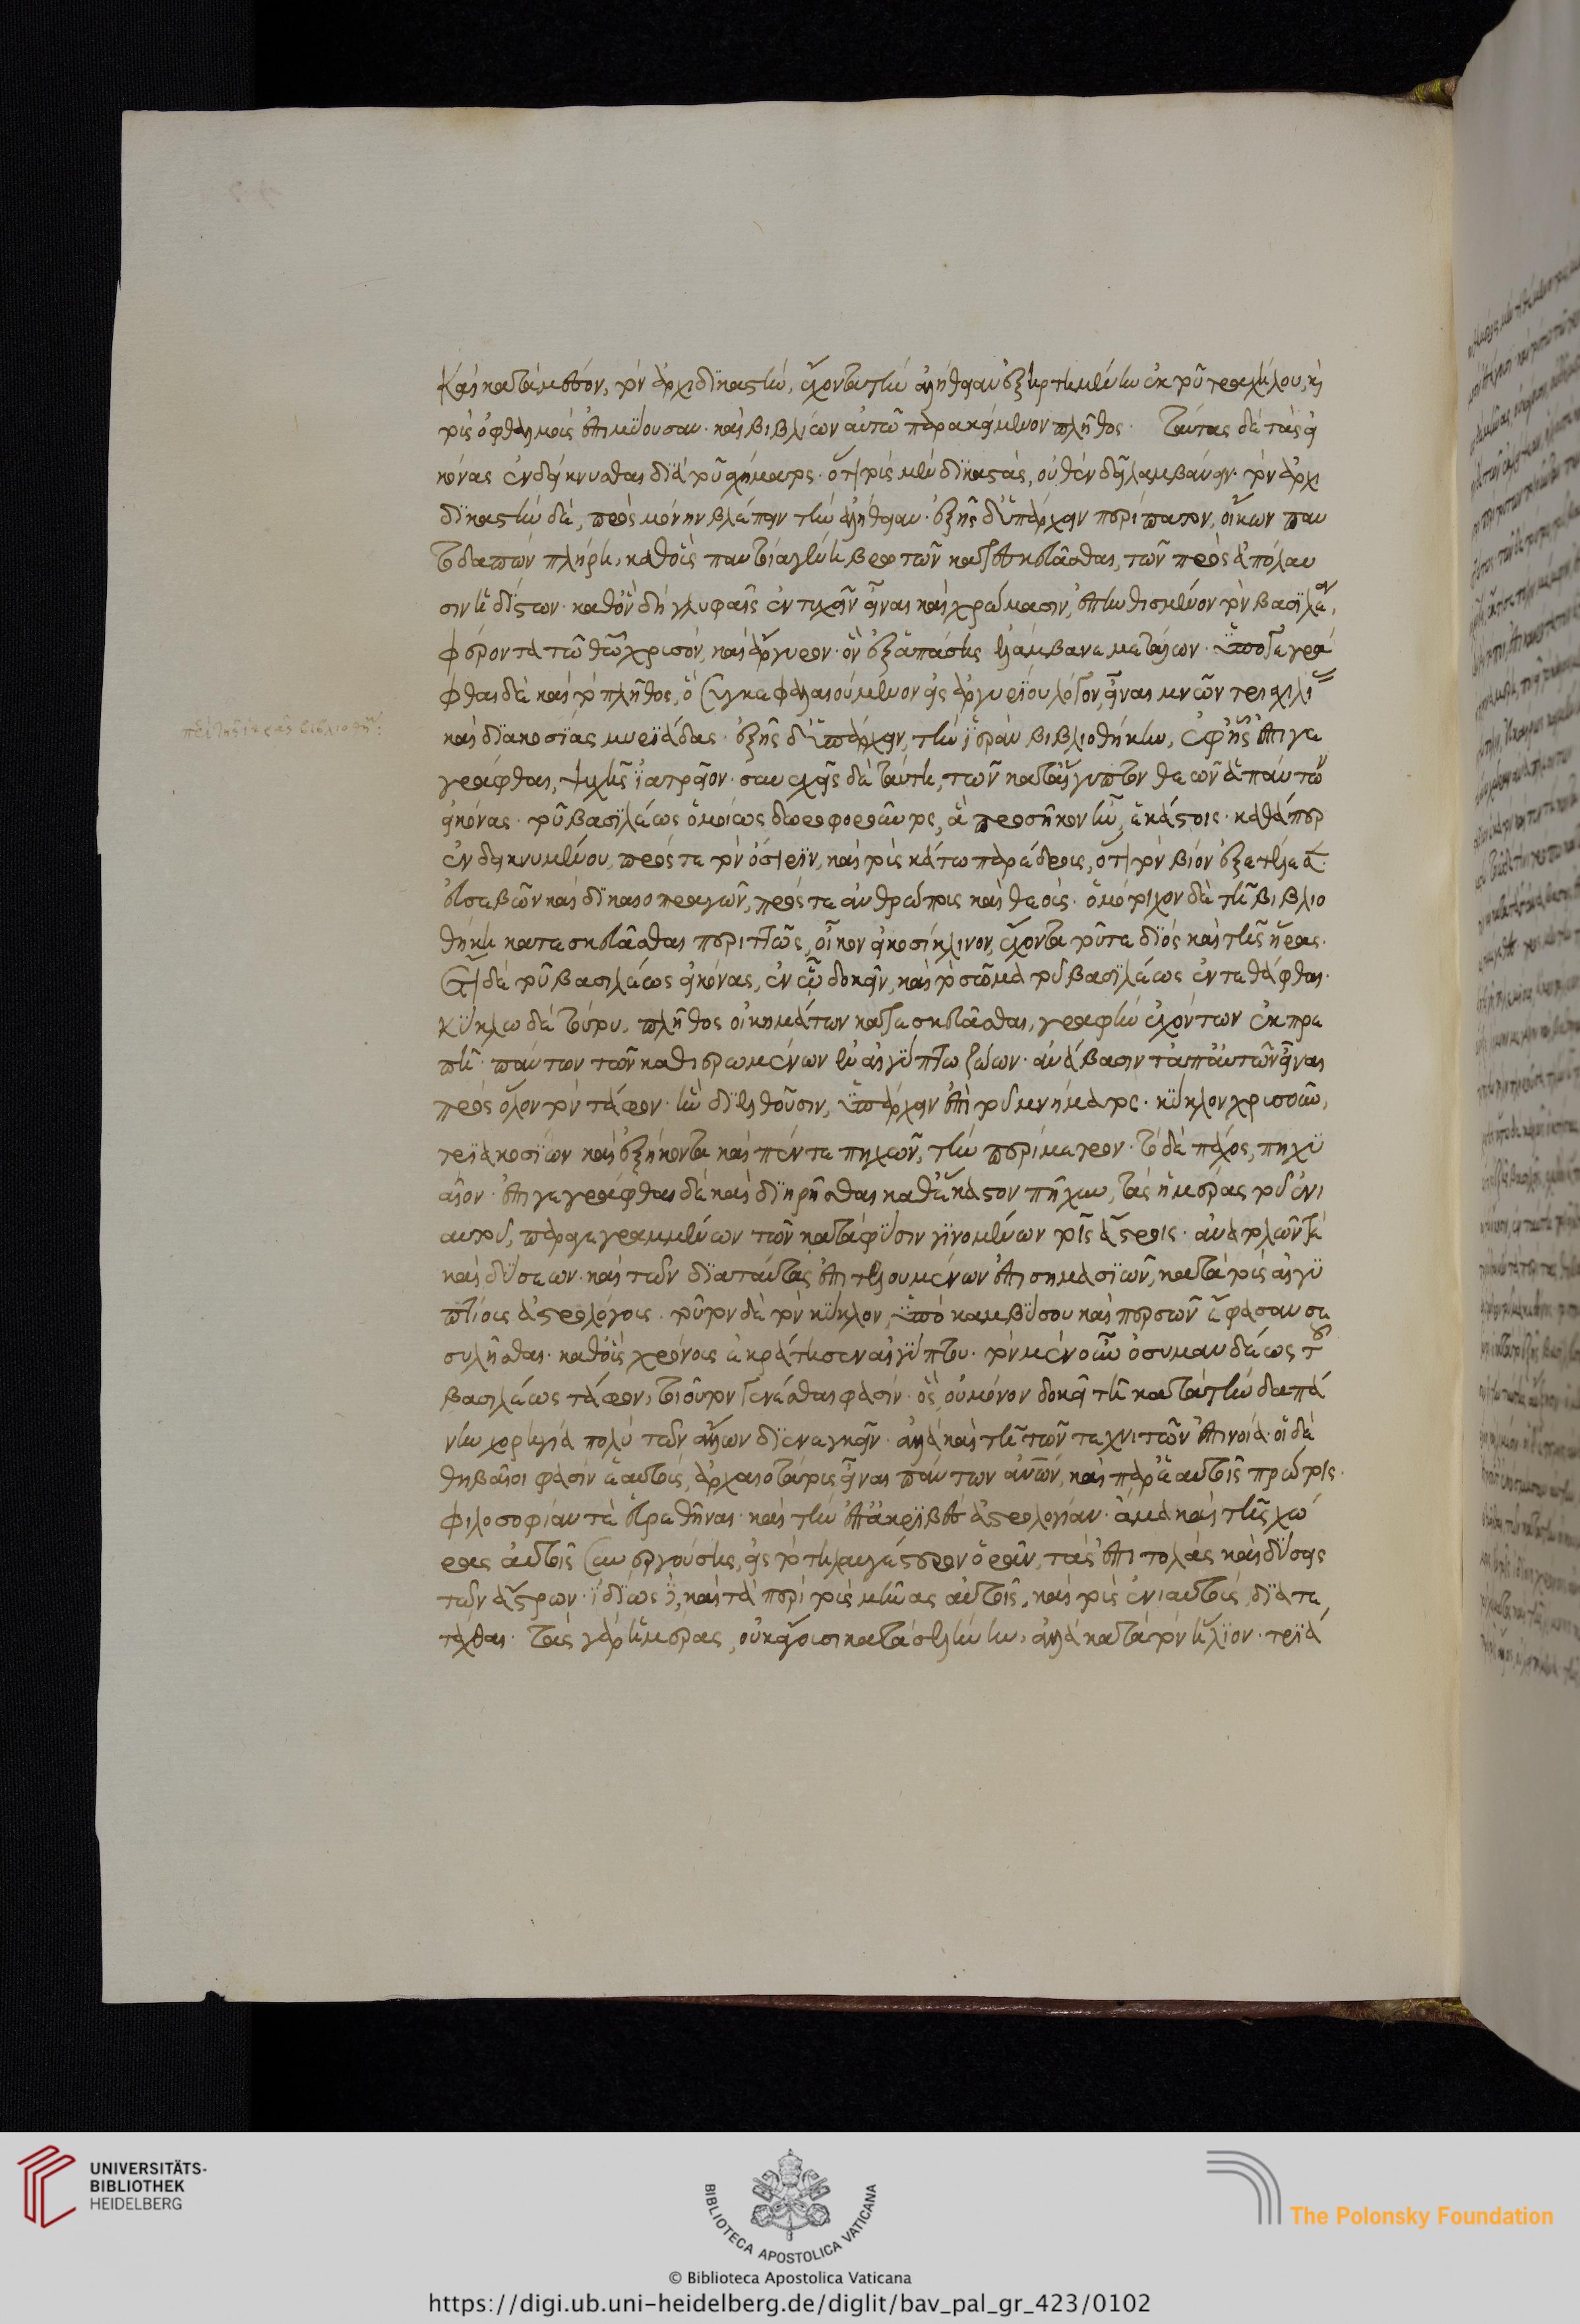 καὶ κατὰ μέσον, τὸν ἀρχιδικαστὴν, ἔχοντα τὴν ἀλήθειαν ἐξηρτημένην ἐκ τοῦ τραχήλου, καὶ
τοὺς ὀφθαλμοὺς ἐπιμύουσαν· καὶ βιβλίων αὐτῶ παρακείμενον πλῆθος· ταύτας δὲ τὰς εἰ
κόνας ἐνδείκνυσθαι διὰ τοῦ σχήματος· ὅτι τοὺς μὲν δικαστὰς, οὐθὲν δεῖ λαμβάνειν· τὸν ἀρχι
δικαστὴν δὲ, πρὸς μόνην βλέπειν τὴν ἀλήθειαν· ἑξῆς δ' ὑπάρχειν περίπατον, οἴκων παν
τοδαπῶν πλήρη, καθ' οὓς παντία γένη βρωτῶν κατεσκευᾶσθαι, τῶν πρὸς ἀπόλαυ
σιν ἡδίστων· καθ' ὃν δὴ γλυφαῖς ἐντυχεῖν εἶναι καὶ χρώμασιν, ἐπηνθισμένον τὸν βασιλέα,
φέροντα τῶ θεῶ χρυσὸν, καὶ ἄργυρον· ὃν ἐξ ἁπάσης ἐλάμβανε μετάλλων· ὑπογεγρά
φθαι δὲ καὶ τὸ πλῆθος, ὃ συγκεφαλαιούμενον εἰς ἀργυρίου λόγον, εἶναι μνῶν τρισχιλί
πε τῆς ἱερᾶς βιβλιοθή
καὶ διακοσίας μυριάδας· ἑξῆς δ' ὑπάρχειν, τὴν ἱερὰν βιβλιοθήκην, ἐφ' ἧς ἐπιγε
γράφθαι, ψυχῆς ἰατρεῖον· συνεχεῖς δὲ ταύτη, τῶν κατ' αἴγυπτον θεῶν ἁπάντων
εἰκόνας· τοῦ βασιλέως ὁμοίως δωροφοροῦντος, ἃ προσῆκον ἦν, ἑκάστοις· καθάπερ
ἐνδεικνυμένου, πρός τε τὸν ὄσιριν, καὶ τοὺς κάτω παρέδρους, ὅτι τὸν βίον ἐξετέλεσε
εὐσεβῶν καὶ δικαιοπραγῶν, πρός τε ἀνθρώπους καὶ θεούς· ὁμότοιχον δὲ τῆ βιβλιο
θήκη κατεσκευᾶσθαι περιττῶς, οἶκον εἰκοσίκλινον, ἔχοντα τοῦ τε διὸς καὶ τῆς ἥρας·
ἔτι δὲ τοῦ βασιλέως εἰκόνας, ἐν ᾧ δοκεῖν, καὶ τὸ σῶμα τοῦ βασιλέως ἐντεθάφθαι·
κύκλω δὲ τούτου, πλῆθος οἰκημάτων κατεσκευᾶσθαι, γραφὴν ἐχόντων ἐκπρε
πῆ πάντων τῶν καθιερωμένων ἐν αἰγύπτω ζώων· ἀνάβασίν τ' ἀπ' αὐτῶν εἶναι
πρὸς ὅλον τὸν τάφον· ἣν διελθοῦσιν, ὑπάρχειν ἐπὶ τοῦ μνήματος· κύκλον χρυσοῦν,
τριακοσίων καὶ ἑξήκοντα καὶ πέντε πηχῶν, τὴν περίμετρον· τὸ δὲ πάχος, πηχυ
αῖον· ἐπιγεγράφθαι δὲ καὶ διηρῆσθαι καθ' ἕκαστον πῆχυν, τὰς ἡμέρας τοῦ ἐνι
αυτοῦ, παραγεγραμμένων τῶν κατὰ φύσιν γινομένων τοῖς ἄστροις· ἀνατολῶν τὲ
καὶ δύσεων· καὶ τῶν διὰ ταύτας ἐπιτελουμένων ἐπισημασιῶν, κατὰ τοὺς αἰγυ
πτίους ἀστρολόγους· τοῦτον δὲ τὸν κύκλον, ὑπὸ καμβύσου καὶ περσῶν ἔφασαν σε
συλῆσθαι· καθ' οὓς χρόνους ἐκράτησεν αἰγύπτου· τὸν μὲν οὖν ὀσυμανδέως τοῦ
βασιλέως τάφον, τοιοῦτον γενέσθαι φασίν· ὃς οὐ μόνον δοκεῖ τῆ κατὰ τὴν δαπά
νην χορηγία πολὺ τῶν ἄλλων διενεγκεῖν· ἀλλὰ καὶ τῆ τῶν τεχνιτῶν ἐπινοία· οἱ δὲ
θηβαῖοι φασὶν ἑαυτοὺς, ἀρχαιοτάτους εἶναι πάντων ἀνων, καὶ παρ' ἑαυτοῖς πρώτοις·
φιλοσοφίαν τὲ εὑρεθῆναι· καὶ τὴν ἐπ' ἀκριβὲς ἀστρολογίαν· ἅμα καὶ τῆς χώ
ρας αὐτοῖς συνεργούσης, εἰς τὸ τηλαυγέστερον ὁρᾶν, τὰς ἐπιτολὰς καὶ δύσεις
τῶν ἄστρων· ἰδίως δὲ, καὶ τὰ περὶ τοὺς μῆνας αὐτοῖς, καὶ τοὺς ἐνιαυτοὺς, διατε
τάχθαι· τὰς γὰρ ἡμέρας, οὐκ ἄγουσι κατὰ σελήνην, ἀλλὰ κατὰ τὸν ἥλιον· τρια
UNIVERSITÄTS-
BIBLIOTHEK
HEIDELBERG
BIBLIOTECA APOSTOLICA VATICANA
The Polonsky Foundation
© Biblioteca Apostolica Vaticana
https://digi.ub.uni-heidelberg.de/diglit/bav_pal_gr_423/0102